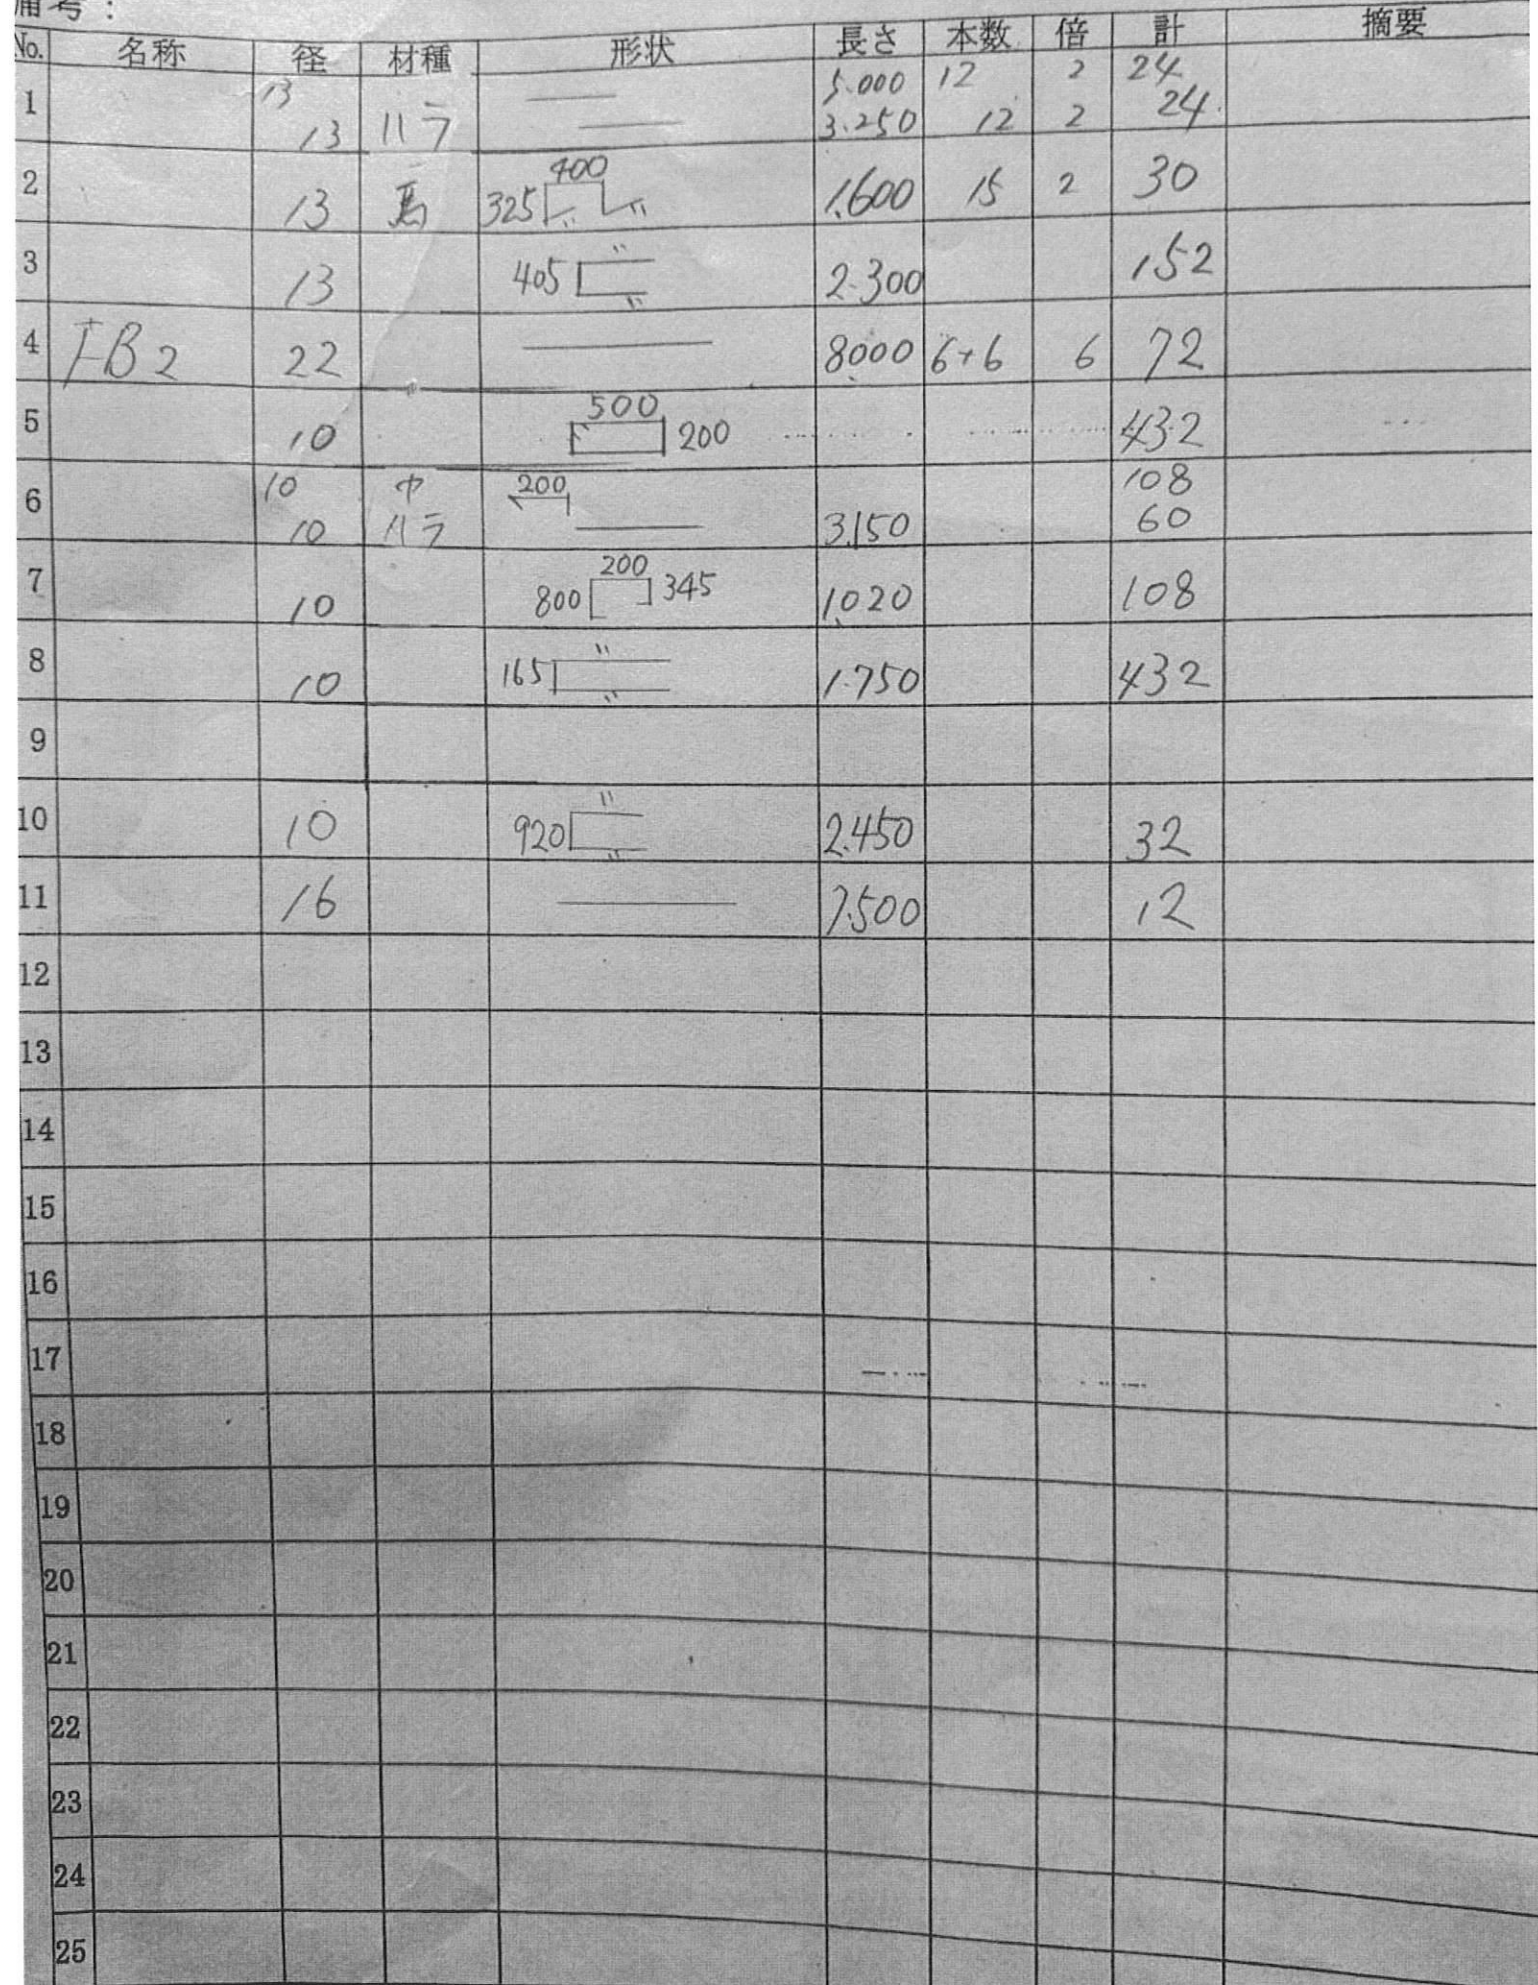 備考：
No. 名称 径 材種 形状 長さ 本数 倍 計 摘要
1 13 5.000 12 2 24
13 ハラ 3.250 12 2 24
2 13 馬 325 400 〃 〃 1.600 15 2 30
3 13 405 〃 〃 2.300 152
4 FB2 22 8.000 6+6 6 72
5 10 500 200 432
6 10 中 200 108
10 ハラ 3.150 60
7 10 800 200 345 1.020 108
8 10 165 〃 〃 1.750 432
9
10 10 920 〃 〃 2.450 32
11 16 7.500 12
12
13
14
15
16
17
18
19
20
21
22
23
24
25